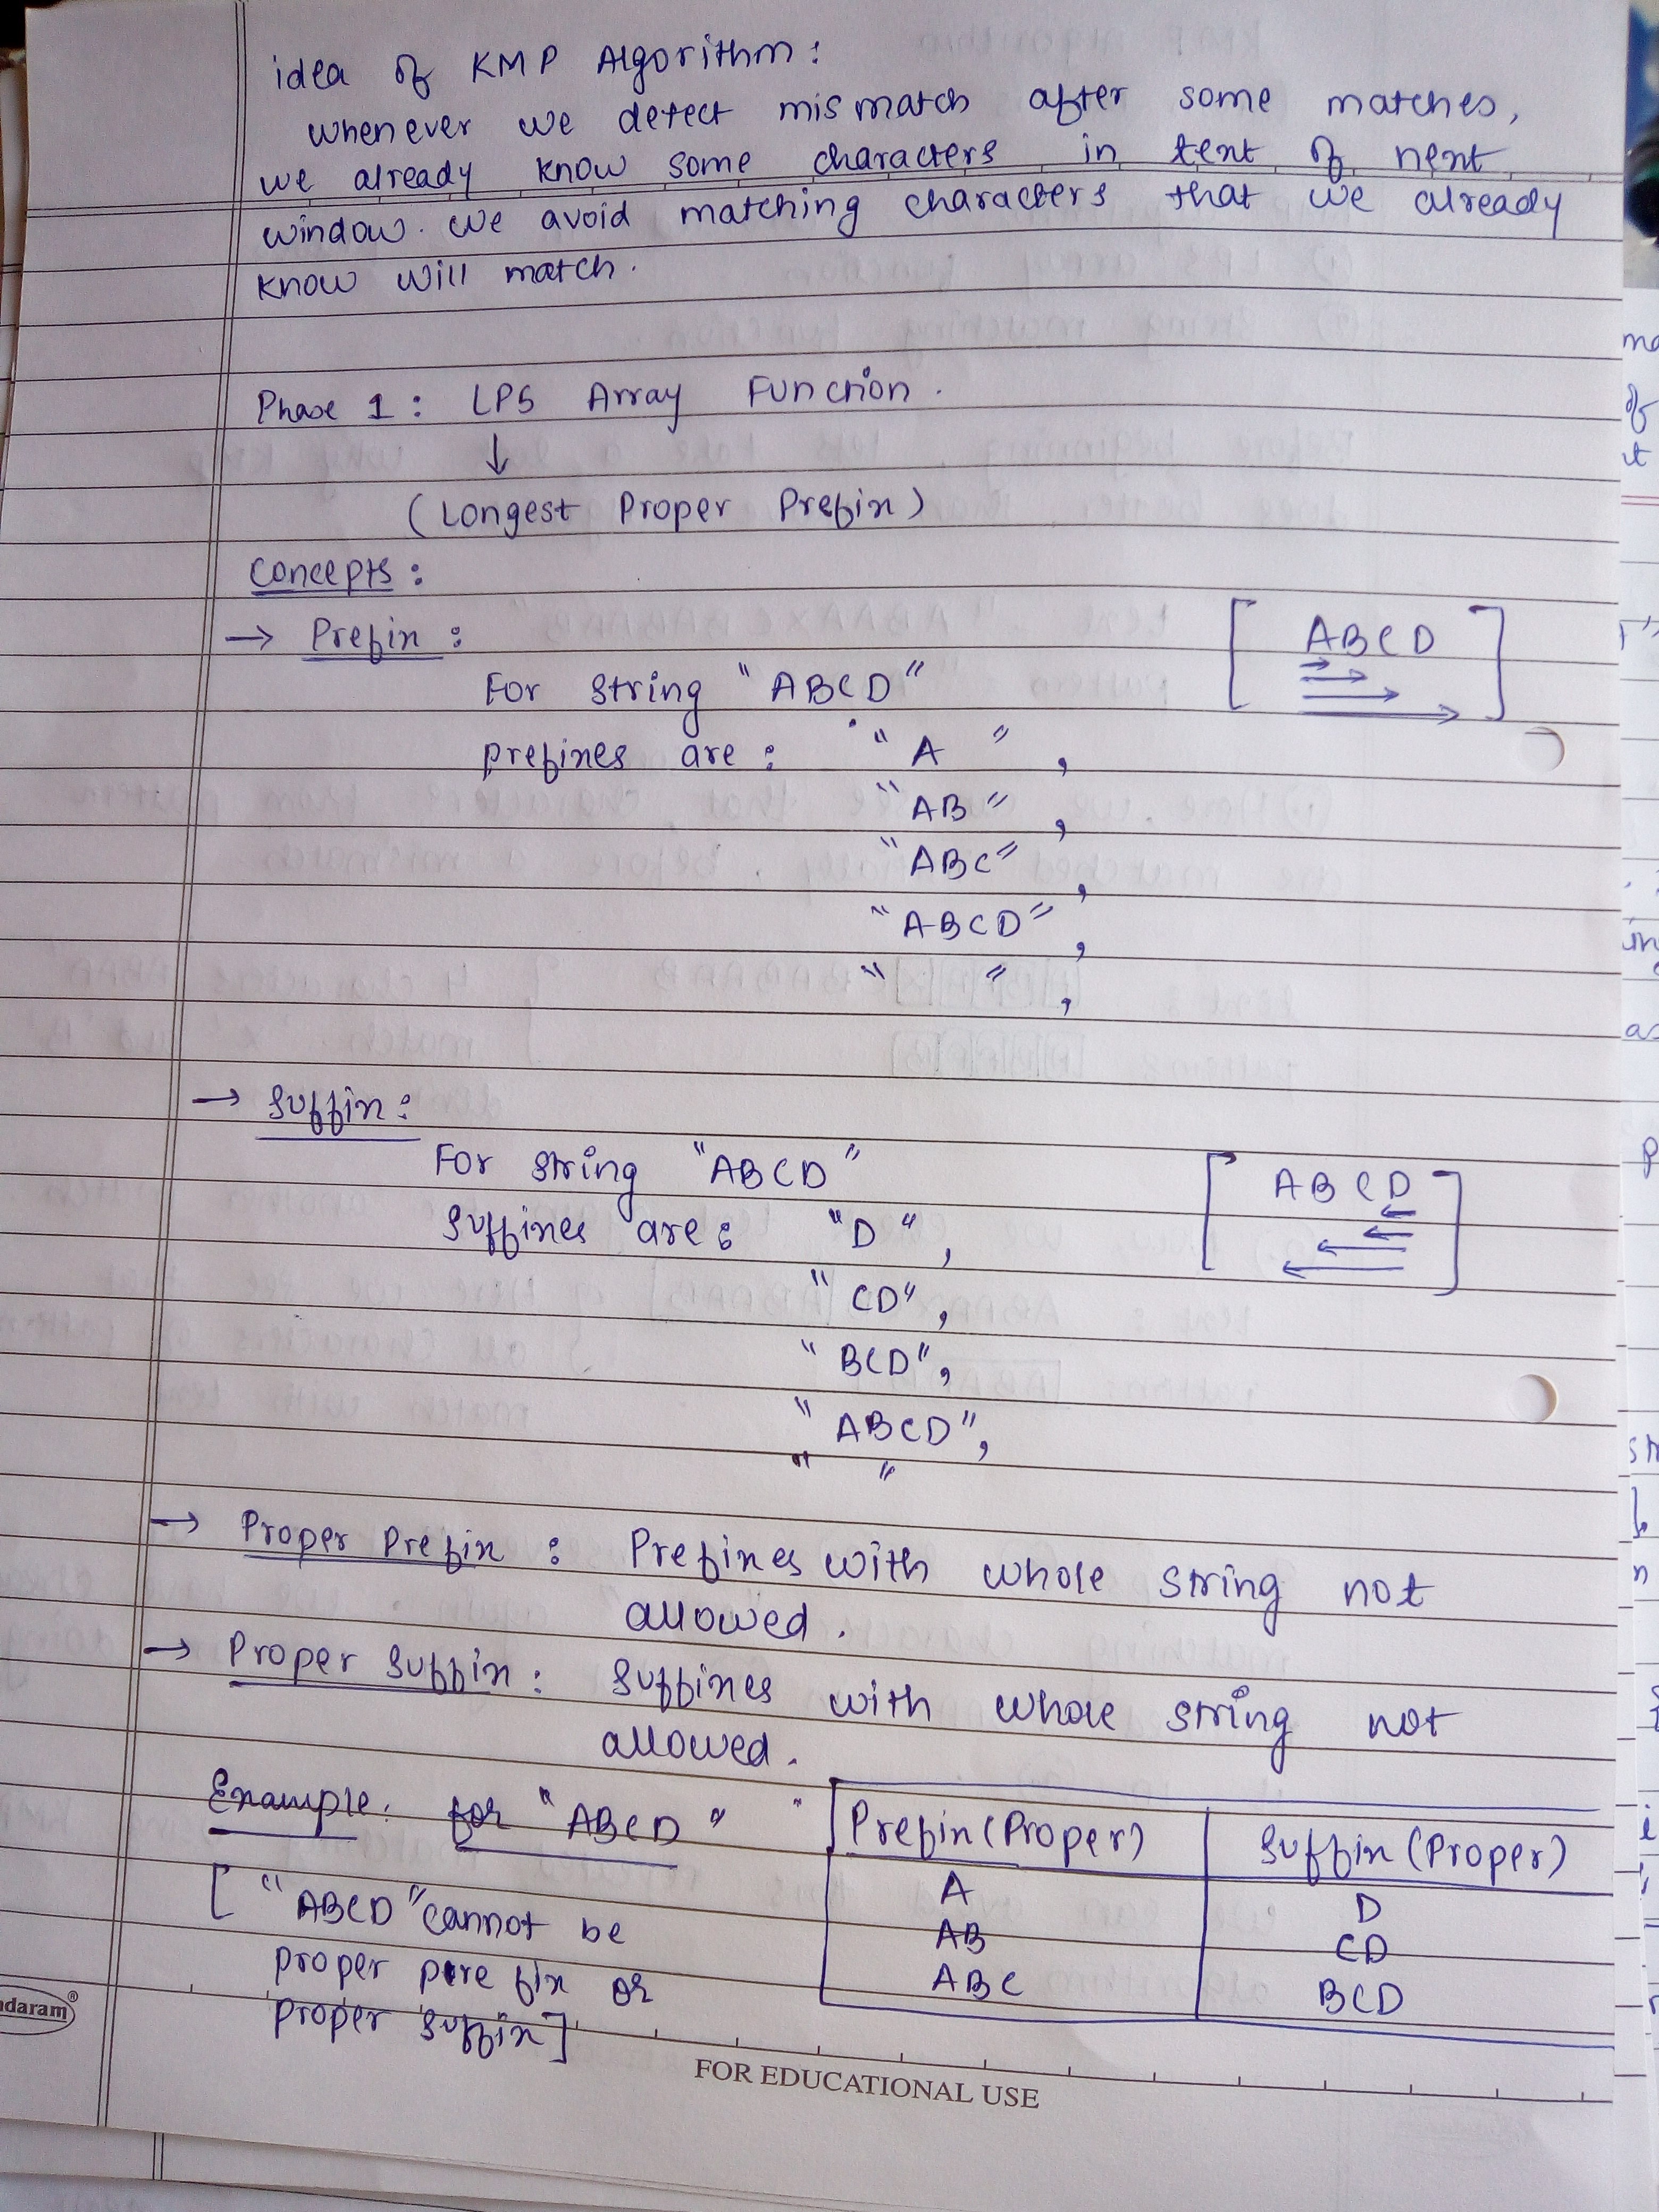 idea of KMP Algorithm:
whenever we detect mismatch after some matches,
we already know some characters in text of next
window. we avoid matching characters that we already
know will match.
Phase 1: LPS Array Function.
↓
(Longest Proper Prefix)
Concepts:
→ Prefix:
[ ABCD ]
For string "ABCD"
prefixes are: "A ",
"AB",
"ABC",
"ABCD",
" ",
→ Suffix:
For string "ABCD"
[ ABCD ]
Suffixes are: "D",
"CD",
"BCD",
"ABCD",
" "
→ Proper Prefix: Prefixes with whole string not
allowed.
→ Proper Suffix: Suffixes with whole string not
allowed.
Example: for "ABCD"
Prefix (Proper) Suffix (Proper)
A D
AB CD
ABC BCD
[ "ABCD" cannot be
proper prefix or
proper suffix]
ndaram®
FOR EDUCATIONAL USE